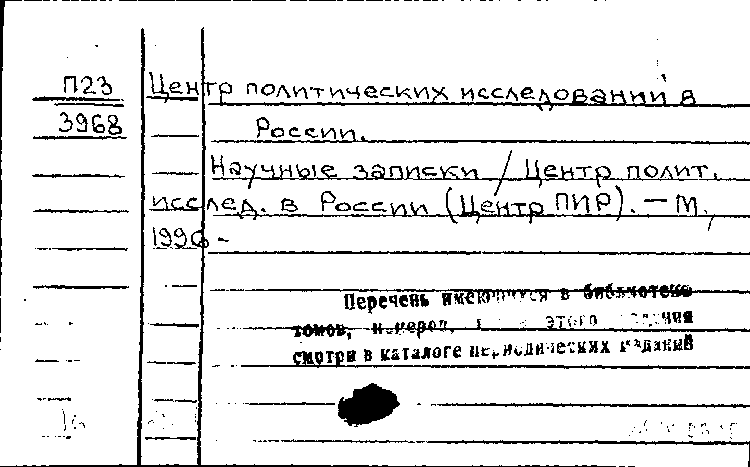 П23 Центр политических исследований в
3968 России.
Научные записки / Центр полит.
исслед. в России (Центр ПИР). – М.,
199 –
Перечень имеющихся в библиотеке
томов, номеров, этого издания
смотри в каталоге периодических изданий